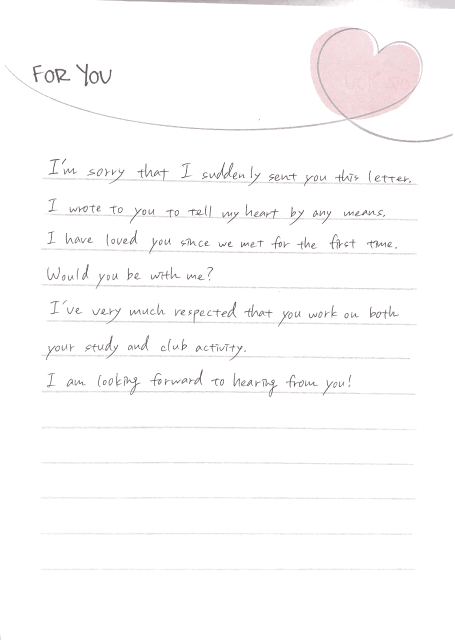 FOR YOU
I'm sorry that I suddenly sent you this letter.
I wrote to you to tell my heart by any means.
I have loved you since we met for the first time.
Would you be with me?
I've very much respected that you work on both
your study and club activity.
I am looking forward to hearing from you!